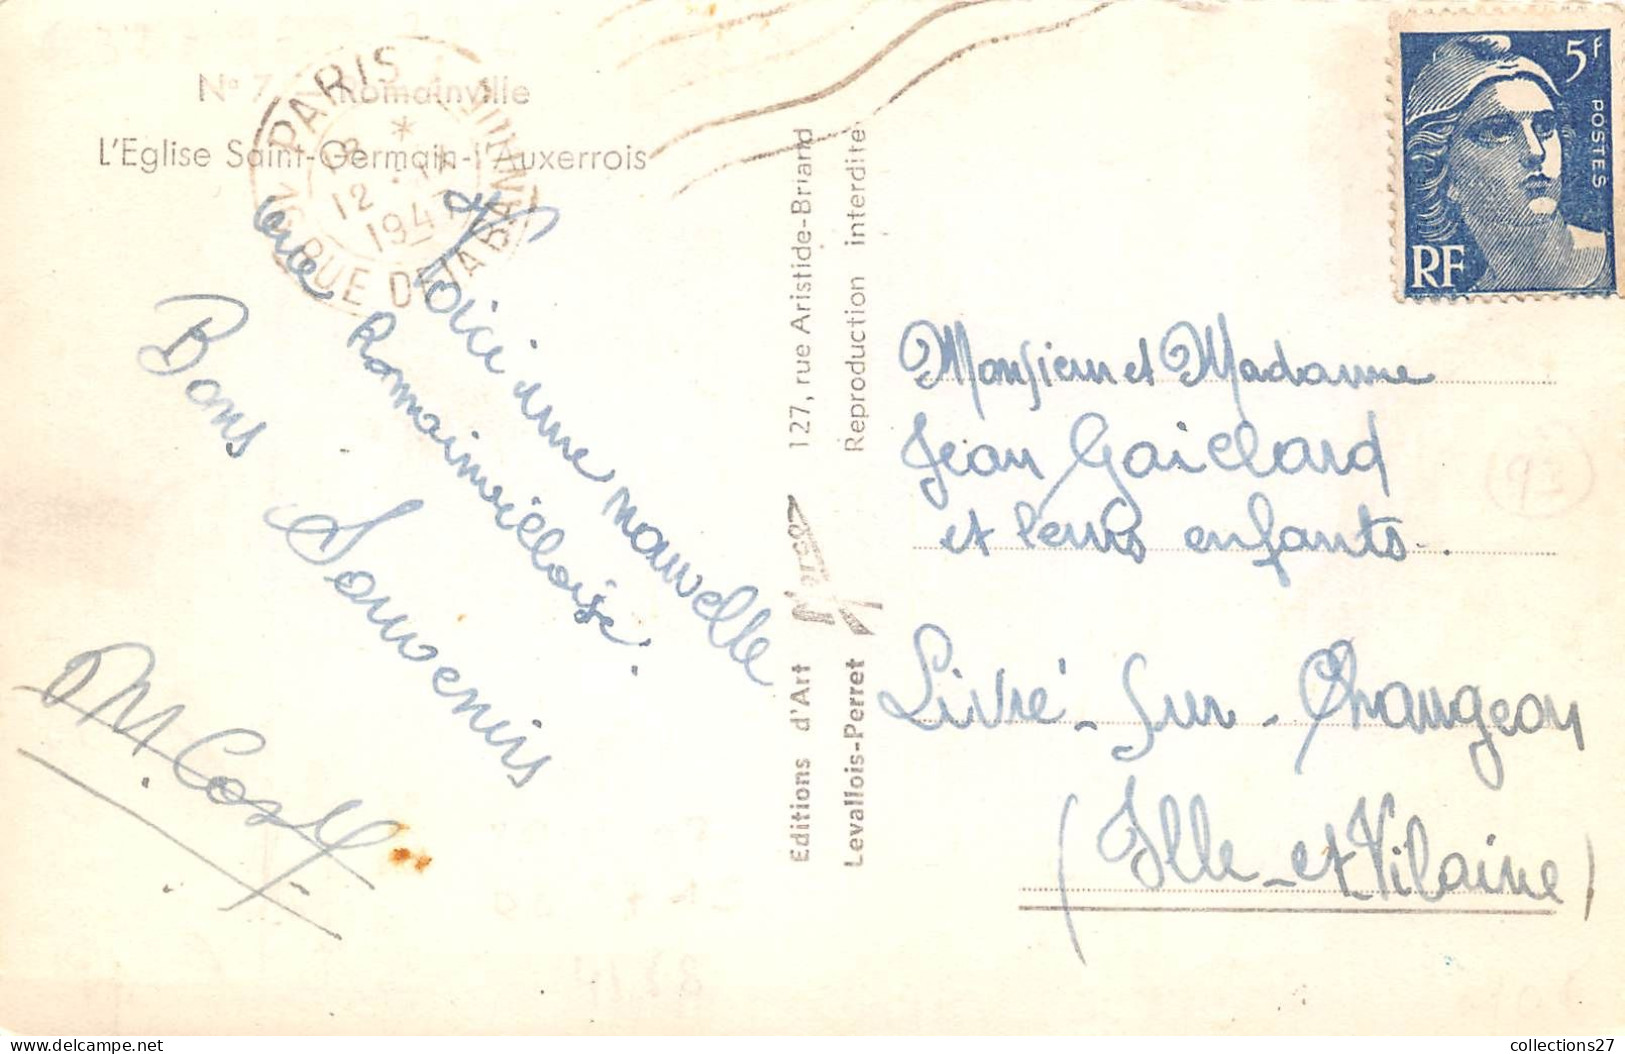 N° 7. — Romainville
L'Eglise Saint-Germain-l'Auxerrois
PARIS
12
1947
RUE DE
Voici une nouvelle
vue Romainvilloise.
Bons Souvenirs
Editions d'Art
127, rue Aristide-Briand
Levallois-Perret
Reproduction interdite
5F
POSTES
RF
Monsieur et Madame
Jean Gaillard
et leurs enfants.
(93)
Livré-sur-Changeon
(Ille-et-Vilaine)
collections27